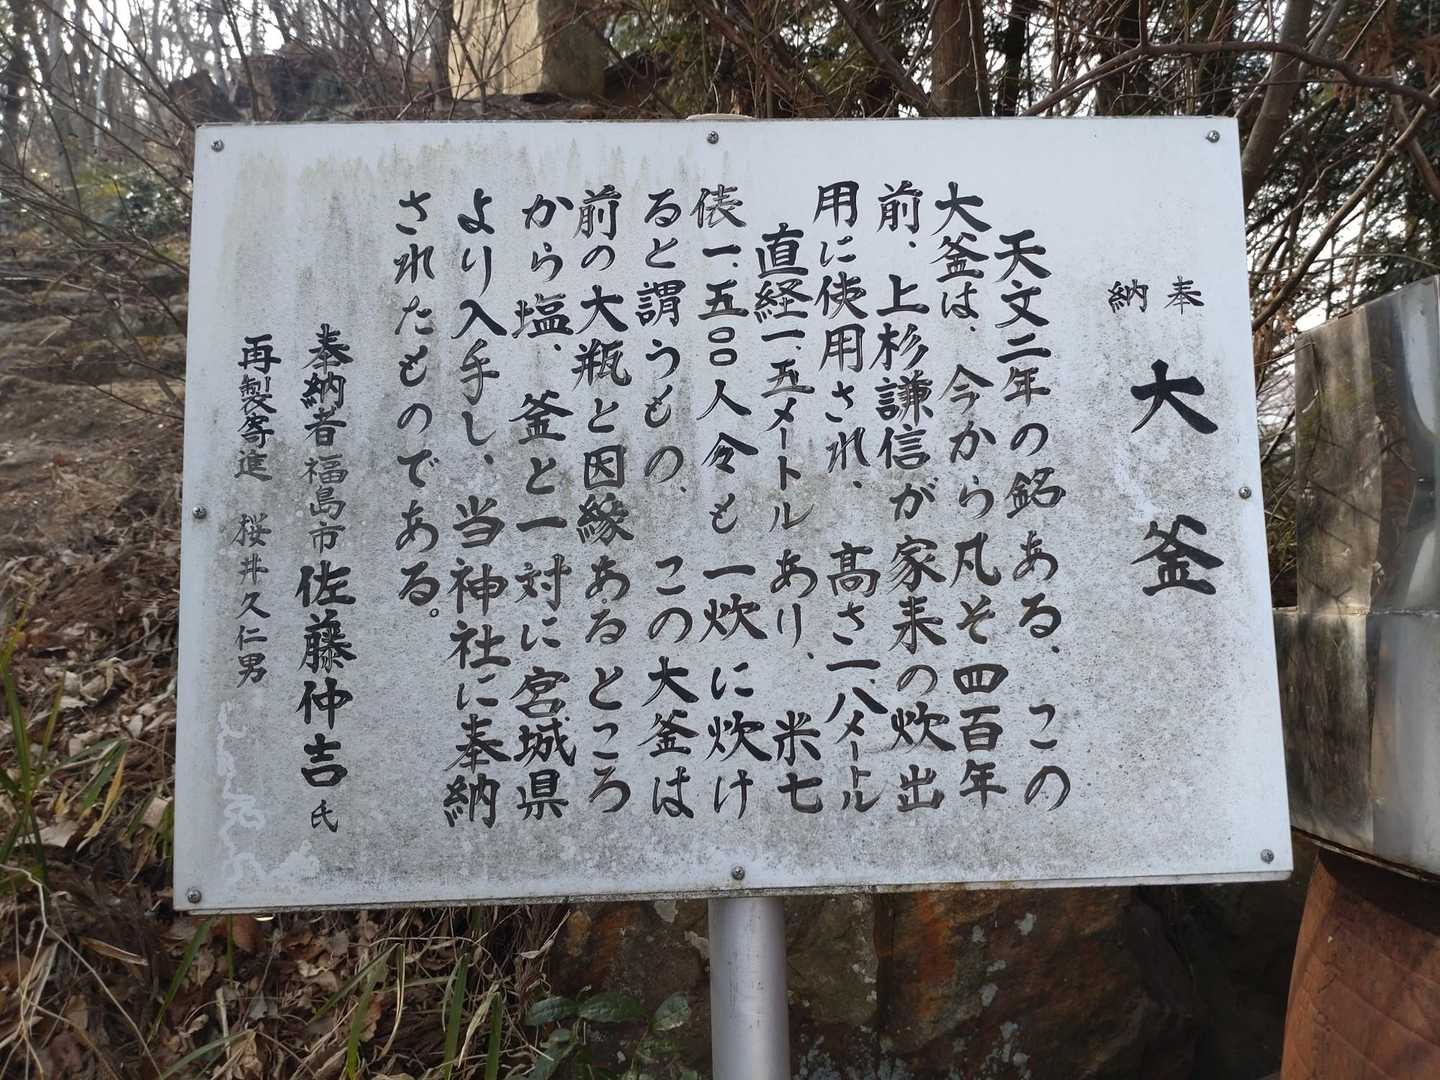 奉納
大釜
天文二年の銘ある、この
大釜は、今から凡そ四百年
前、上杉謙信が家来の炊出
用に使用され、高さ一、八メートル
直経一、五メートルあり、米七
俵一、五〇〇人分も一炊に炊け
ると謂うもの、この大釜は
前の大瓶と因縁あるところ
から塩、釜と一対に宮城県
より入手し、当神社に奉納
されたものである。
奉納者福島市佐藤仲吉氏
再製寄進 桜井久仁男